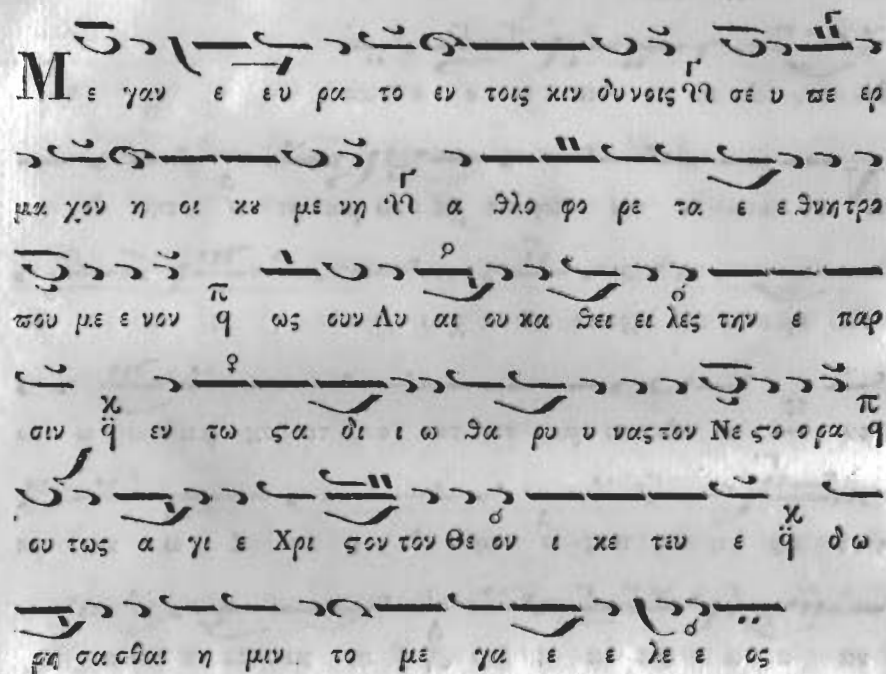 Μ ε γαν ε ευ ρα το εν τοις κιν δυ νοις σε υ πε ερ
μα χον η οι κȣ με νη α θλο φο ρε τα ε ε θνη τρο
που με ε νον π q ως ουν Λυ αι ου κα θει ει λες την ε παρ
σιν κ q̈ εν τω ϛα δι ι ω θα ρυ υ νας τον Νε ϛο ο ρα π q
ου τως α γι ε Χρι ϛον τον Θε ον ι κε τευ ε κ q̈ δω
ρη σα σθαι η μιν το με γα ε ε λε ε ος